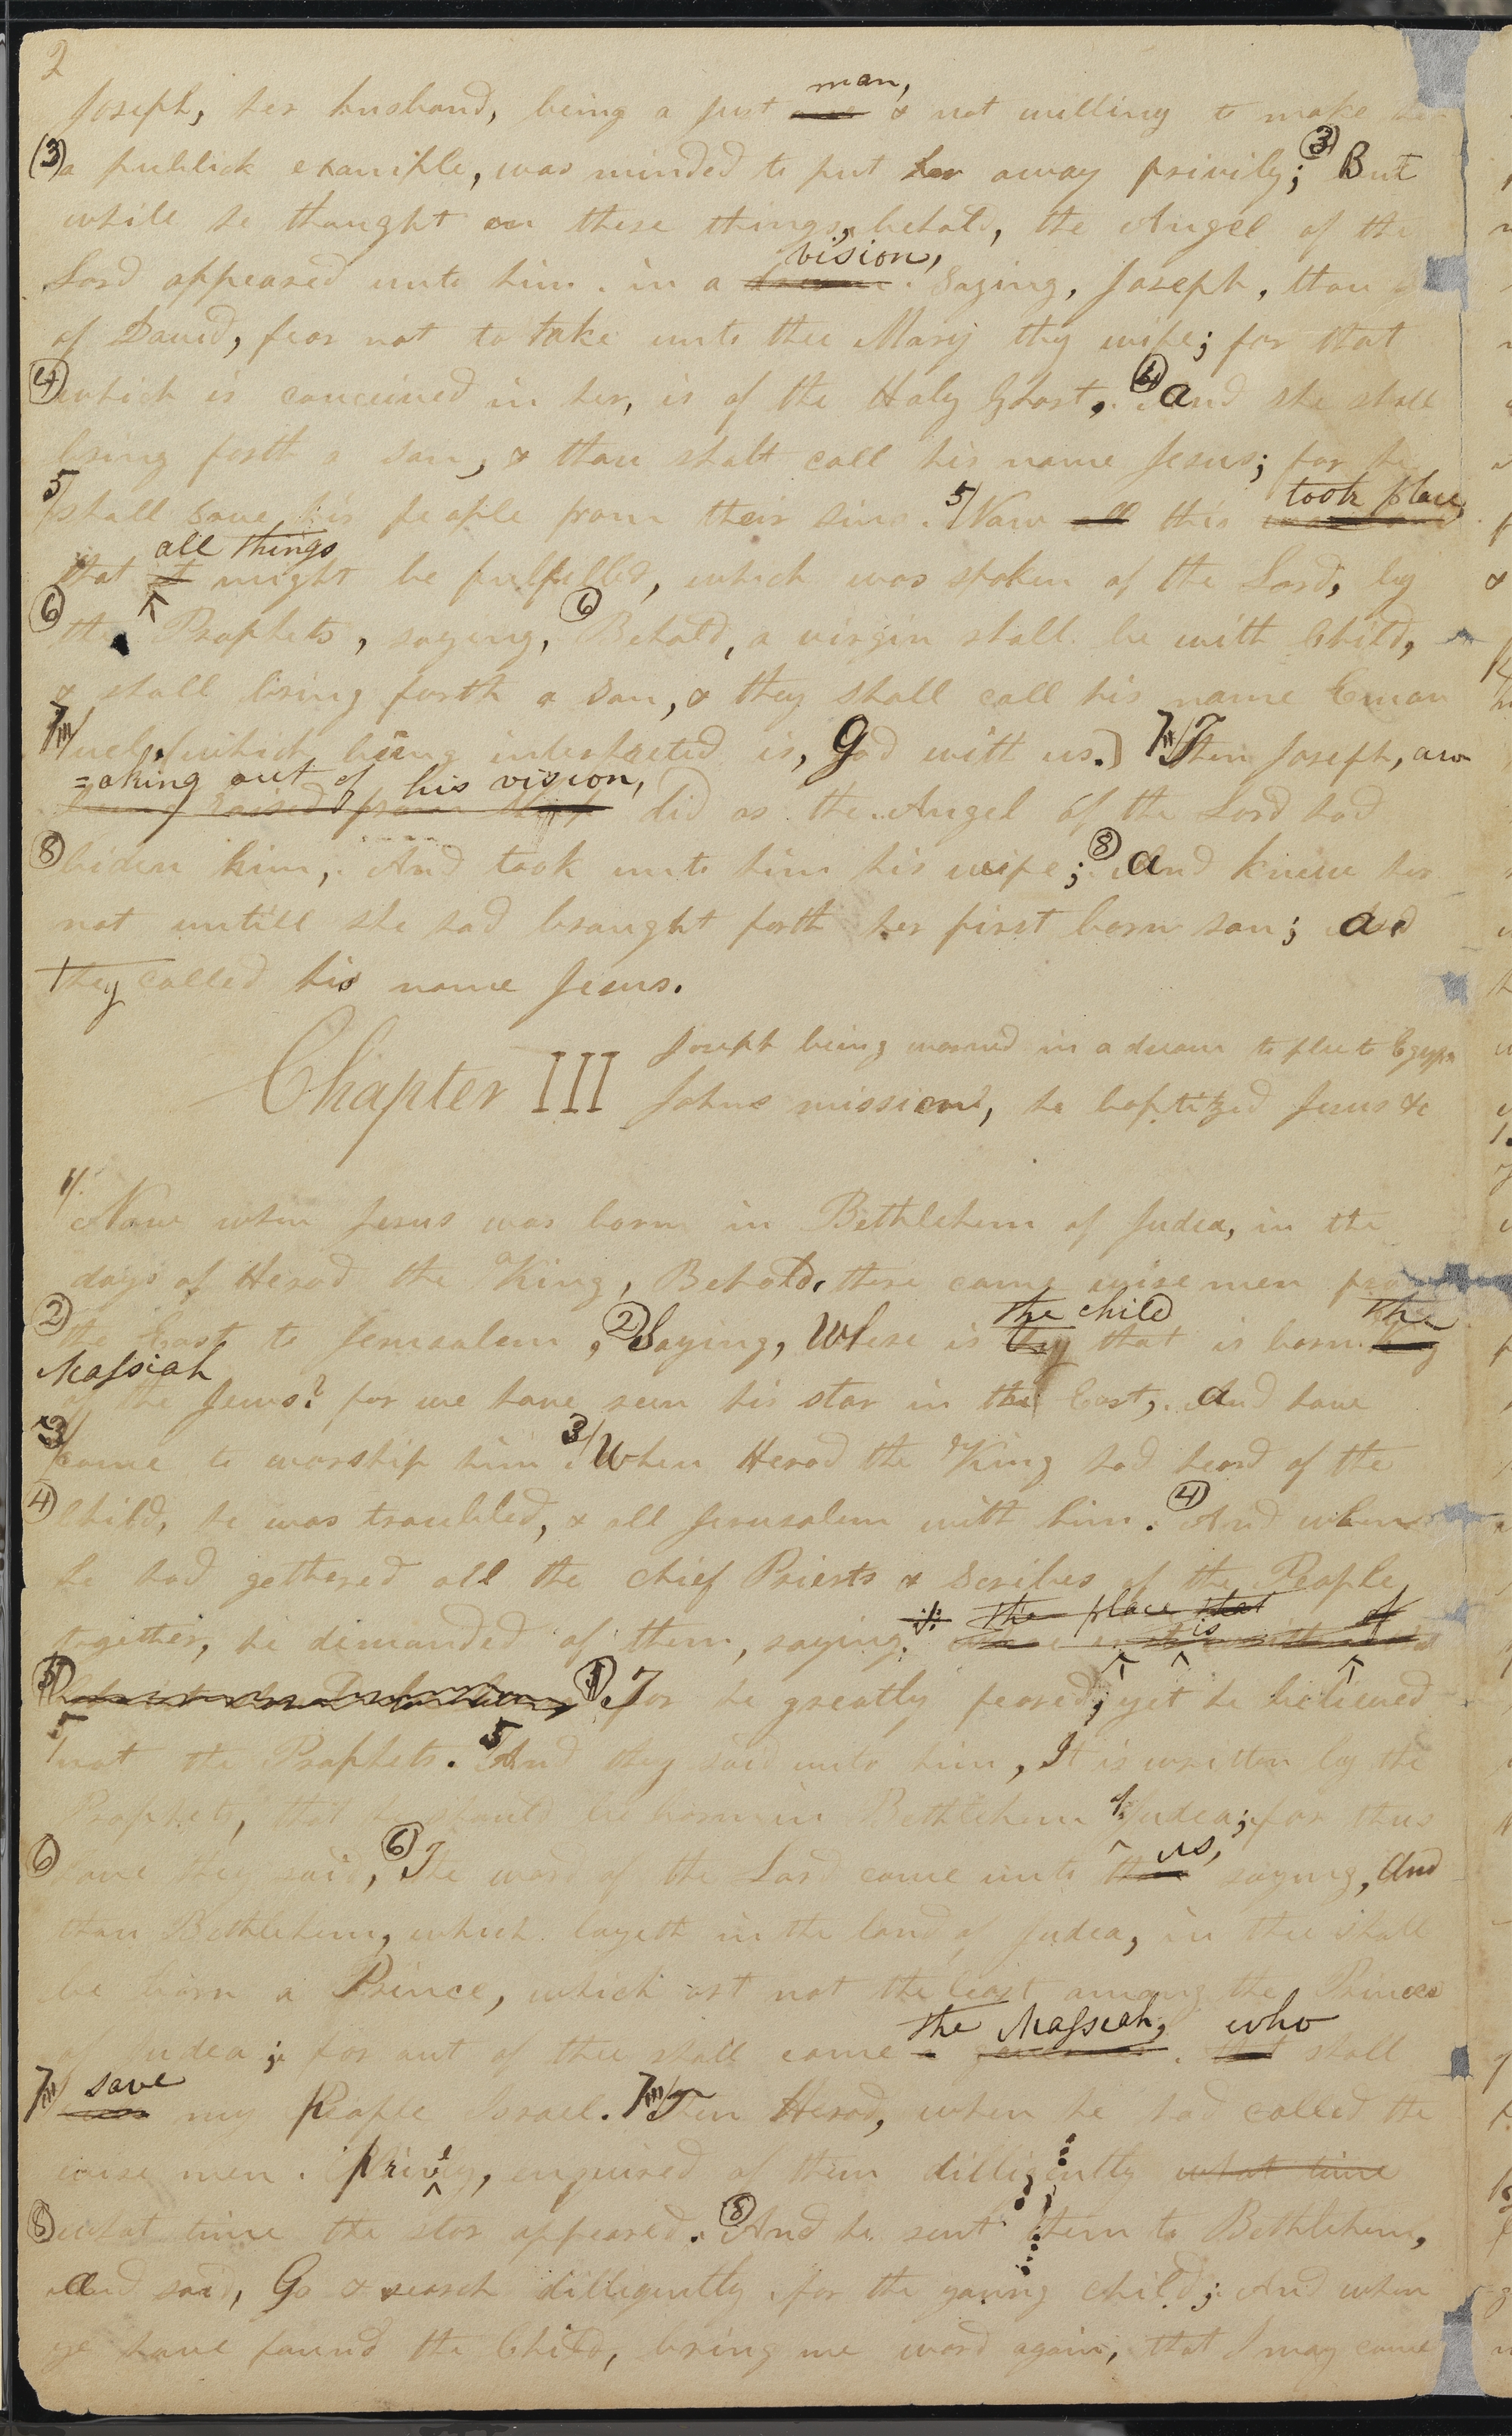 2
Joseph, her husband, being a just man, & not willing to make her
(3) a publick example, was minded to put her away privily; (3) But
while he thought on these things, behold, the Angel of the
Lord appeared unto him. in a vision, Saying, Joseph, thou
of David, fear not to take unto thee Mary thy wife; for that
(4) which is conceived in her, is of the Holy Ghost, (4) and she shall
bring forth a son, & thou shalt call his name Jesus; for he
5/ shall save his people from their sins. 5/ Now all this took place,
that it all things might be fulfilled, which was spoken of the Lord, by
(6) the Prophets, saying, (6) Behold, a virgin shall be with Child,
& shall bring forth a son, & they shall call his name Eman
7/ uel, (which being interpreted is, God with us.) 7/ Then Joseph, awa
=aking out of his vision,
being raised from sleep did as the Angel of the Lord had
(8) biden him, And took unto him his wife; (8) and knew her
not untill she had braught forth her first born son; and
they called his name Jesus.
Chapter III Joseph being warned in a dream to flee to Egypt
Johns mission, he baptized Jesus &c
1/ Now when Jesus was born in Bethlehem of Judea, in the
days of Herod the King, Behold, there came wise men from
(2) the East to Jerusalem, (2) Saying, Where is the child that is born the
Massiah
of the Jews? for we have seen his star in the East, and have
3/ come to worship him. 3/ When Herod the King had heard of the
(4) Child, he was troubled, & all Jerusalem with him. (4) And when
he had gethered all the chief Priests & Scribes of the People
together, he demanded of them, saying, the place that is of
For he greatly feared; yet he believed
5/ not the Prophets. 5 And they said unto him, It is written by the
Prophets, that he should be born in Bethlehem of Judea; for thus
(6) have they said, (6) The word of the Lord came unto us, saying, And
thou Bethlehem, which layeth in the land of Judea, in thee shall
be born a Prince, which art not the least among the Princes
of Judea; for out of thee shall come the Massiah, who shall
7/ save my People Israel. 7/ Then Herod, when he had called the
wise men. privily, enquired of them dilligently what time
(8) what time the star appeared. (8) And he sent them to Bethlehem,
and said, Go & search dilligently for the young child; And when
ye have found the Child, bring me word again, that I may come